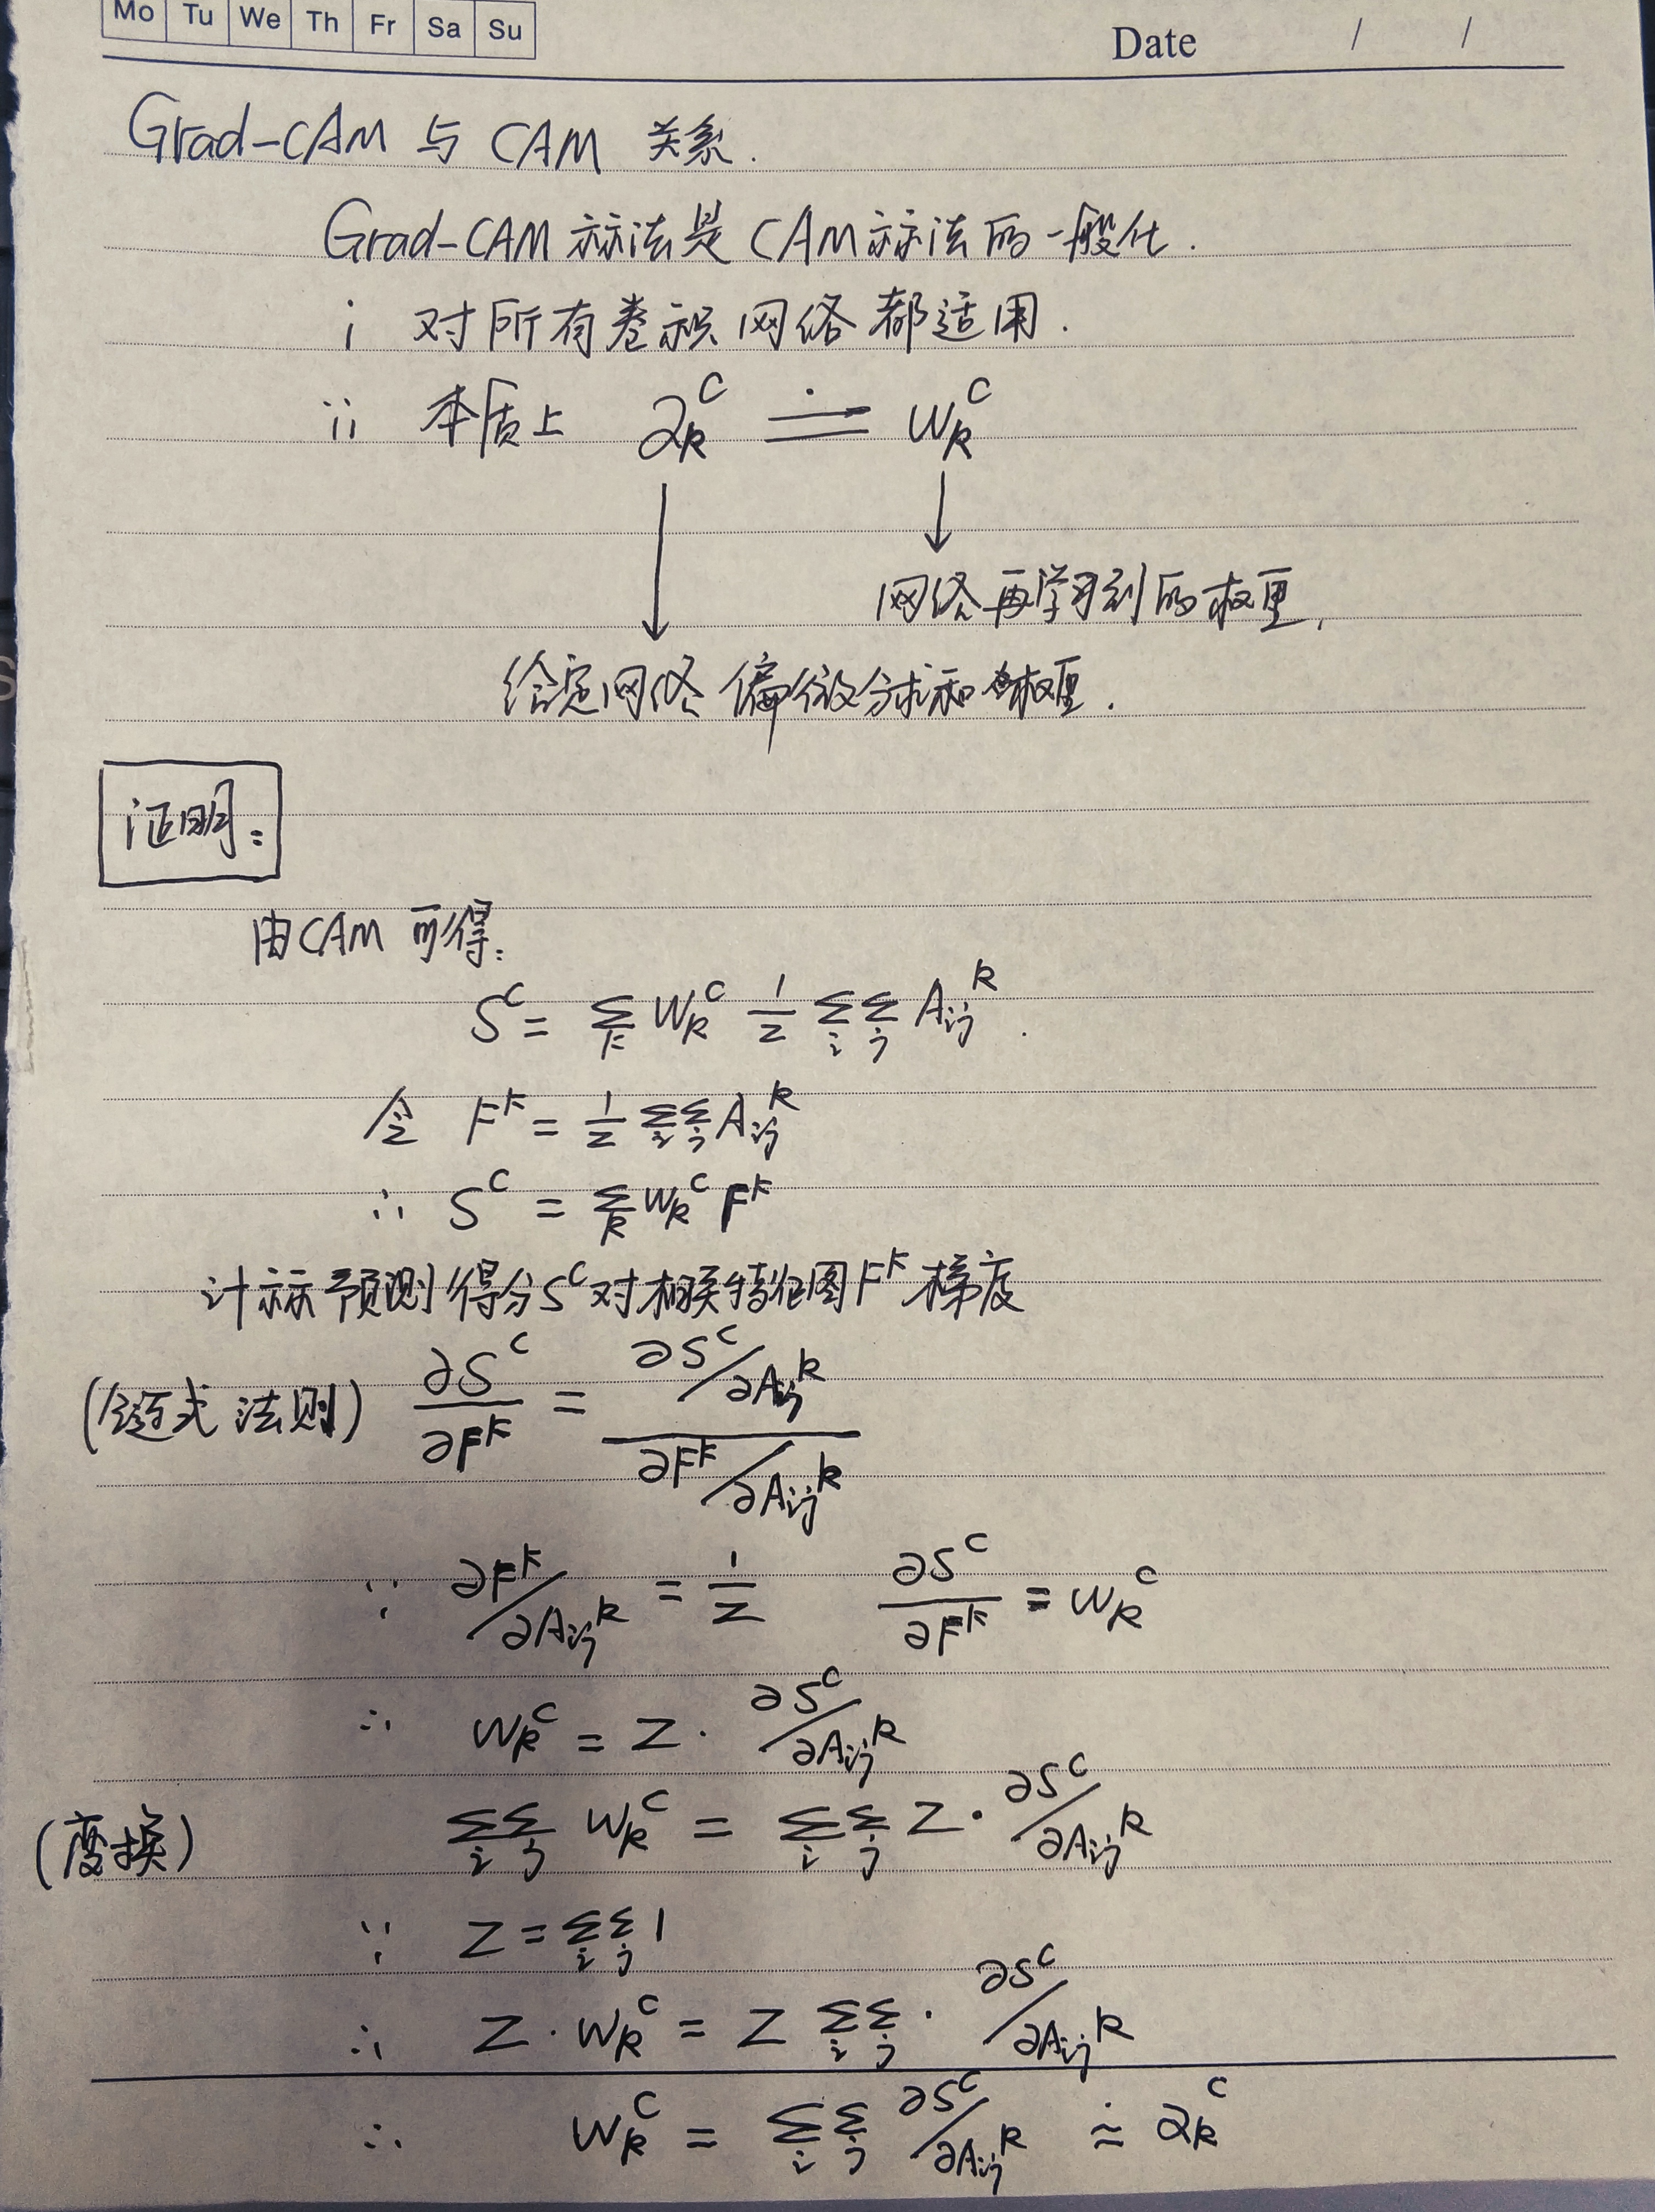 Mo Tu We Th Fr Sa Su
Date / /
Grad-CAM 与 CAM 关系.
Grad-CAM 算法是 CAM 算法的一般化.
i 对所有卷积网络都适用.
ii 本质上 α_k^c ≐ w_k^c
网络再学习到的权重.
给定网络 偏微分求和 权重.
证明:
由CAM 可得:
S^c = Σ_k w_k^c 1/Z Σ_i Σ_j A_ij^k .
令 F^k = 1/Z Σ_i Σ_j A_ij^k
∴ S^c = Σ_k w_k^c F^k
计算预测得分S^c对相关特征图F^k梯度
(链式法则) ∂S^c/∂F^k = (∂S^c/∂A_ij^k)/(∂F^k/∂A_ij^k)
∵ ∂F^k/∂A_ij^k = 1/Z ∂S^c/∂F^k = w_k^c
∴ w_k^c = Z · ∂S^c/∂A_ij^k
(变换) Σ_i Σ_j w_k^c = Σ_i Σ_j Z · ∂S^c/∂A_ij^k
∵ Z = Σ_i Σ_j 1
∴ Z · w_k^c = Z Σ_i Σ_j · ∂S^c/∂A_ij^k
∴ w_k^c = Σ_i Σ_j ∂S^c/∂A_ij^k ≐ α_k^c